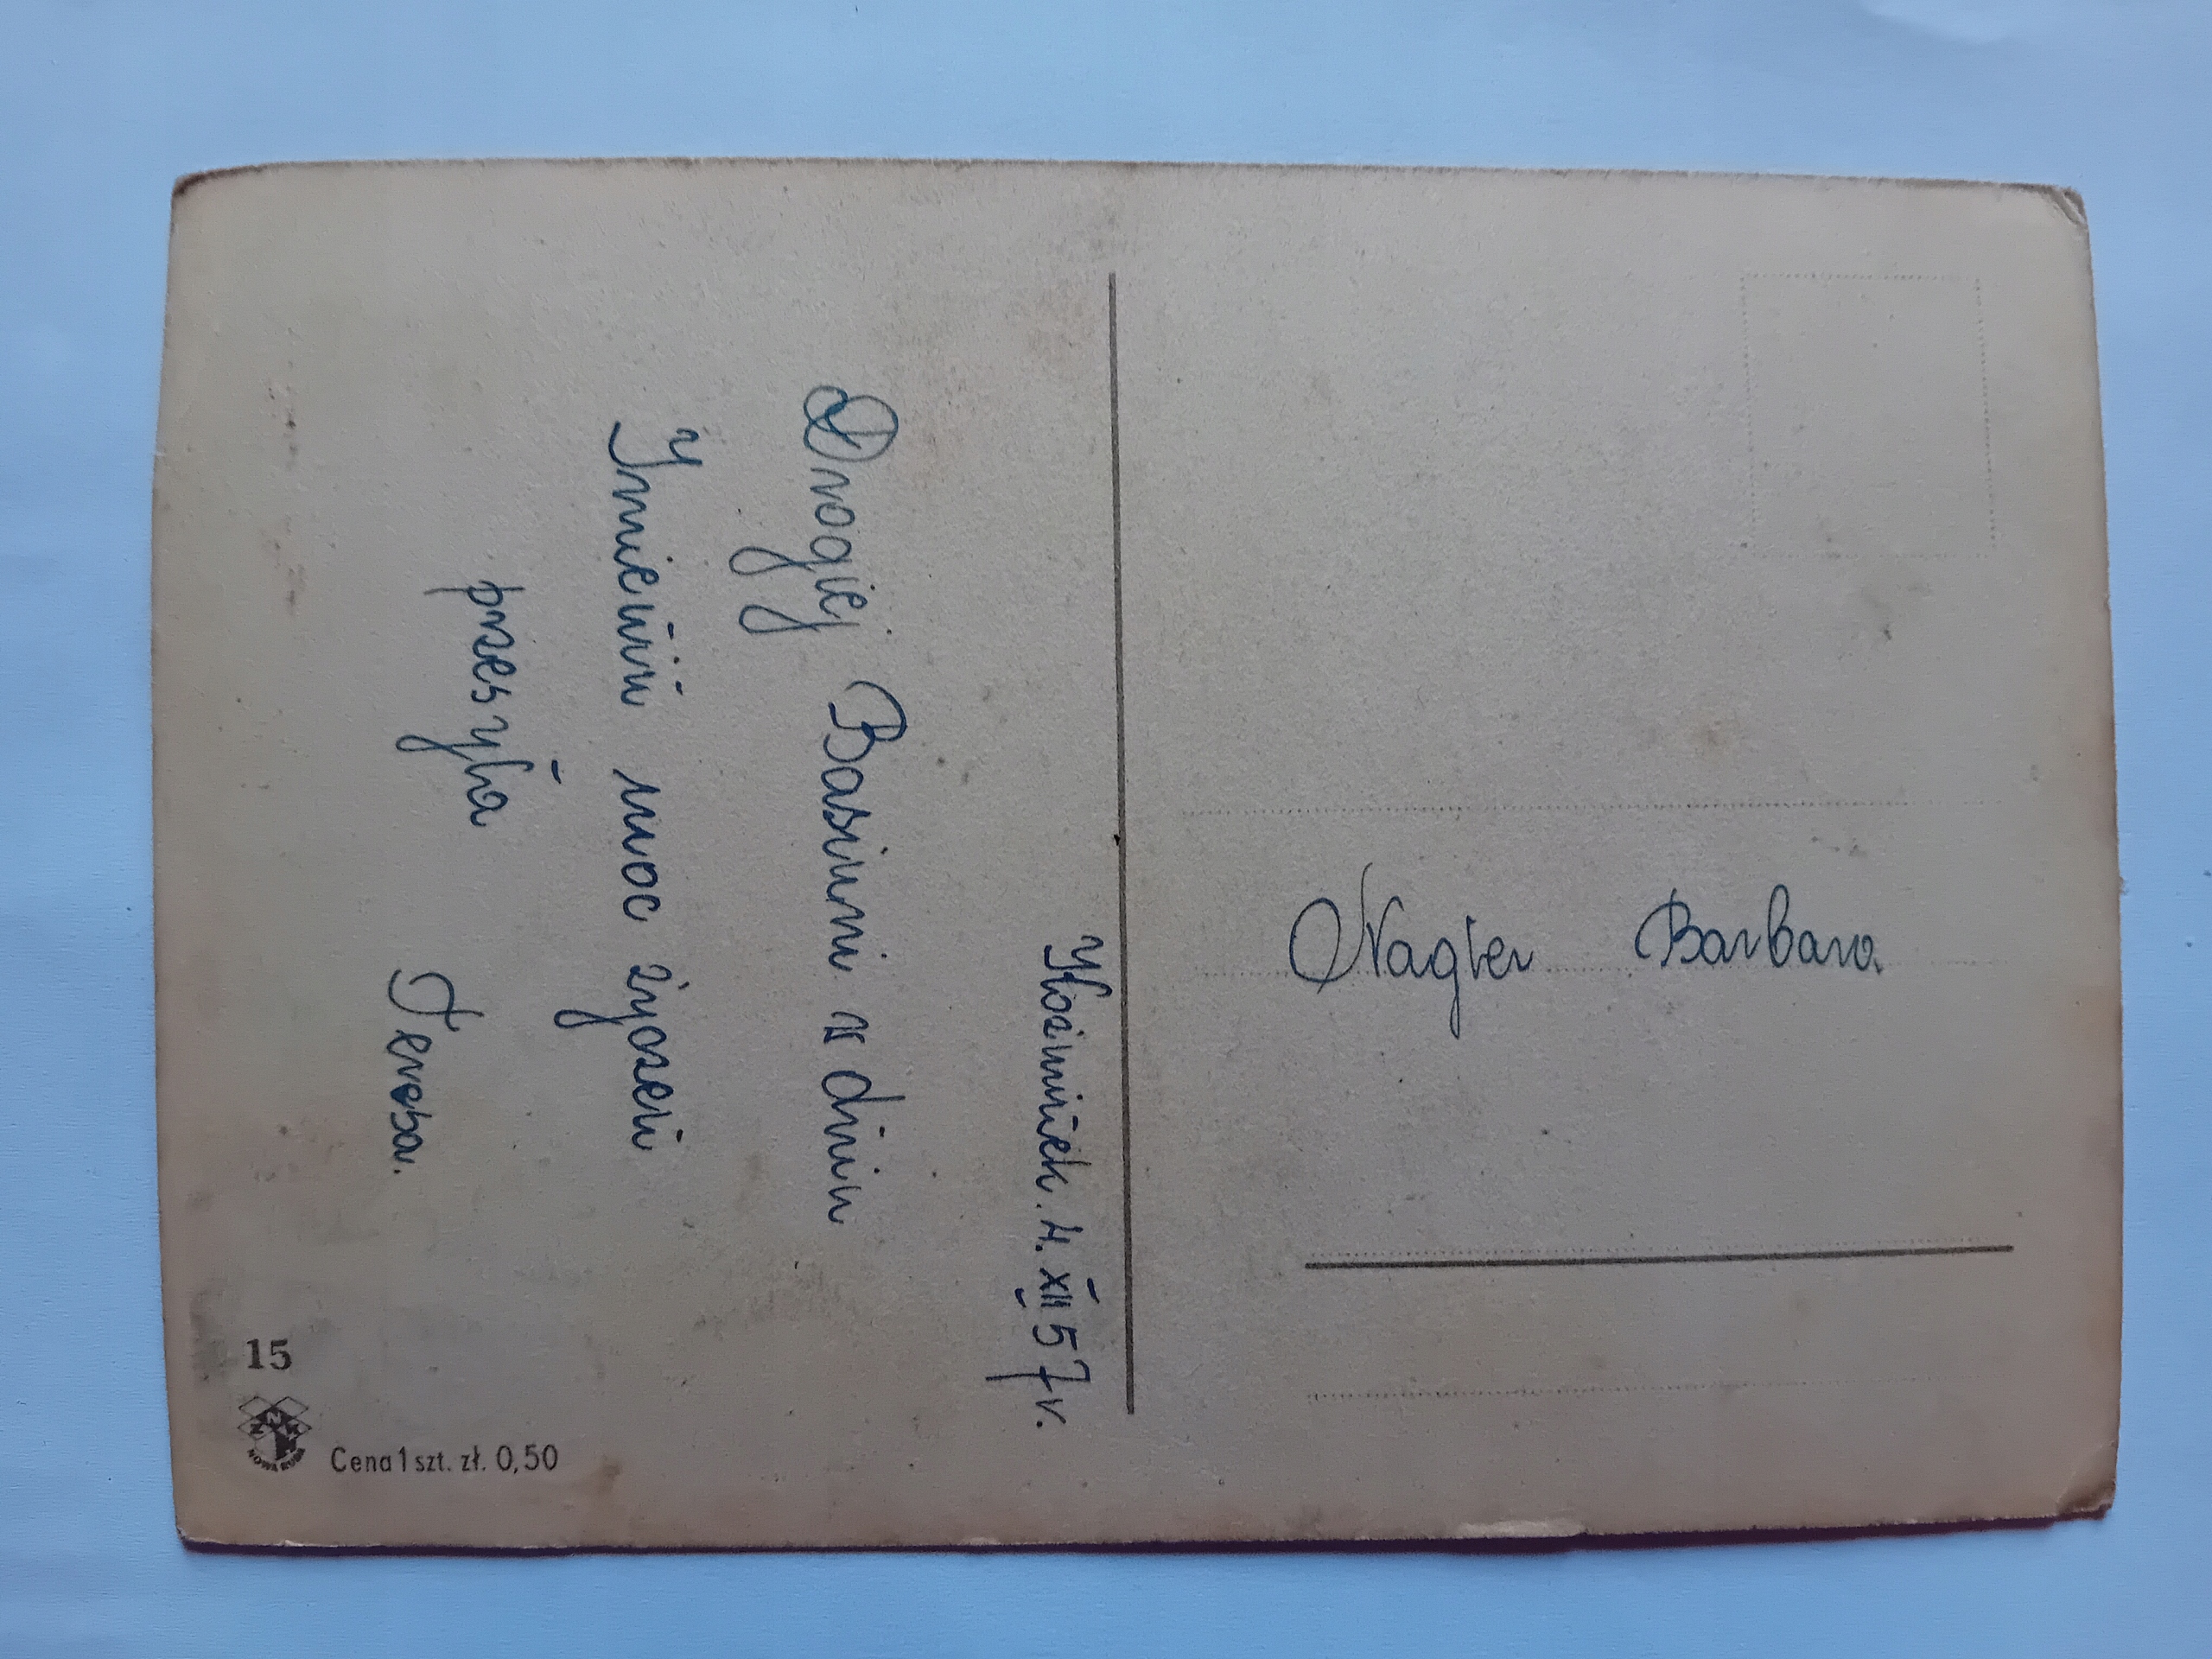 Kosimiek. 4. XII 57 r.
Drogiej Basiuni w dniu
Imienin moc życzeń
przesyła
Teresa.
Nagler Barbara
15
ZNK
NOWA RUDA
Cena 1 szt. zł. 0,50